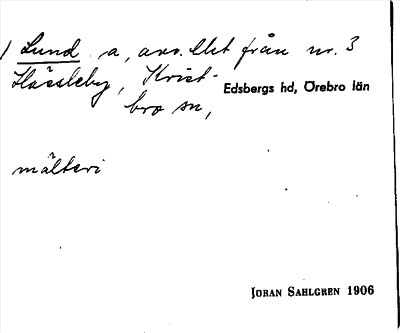 1 Lund a, avs. lht från nr. 3
Hässleby, Krist-
bro sn,
Edsbergs hd, Örebro län
mälteri
JÖRAN SAHLGREN 1906